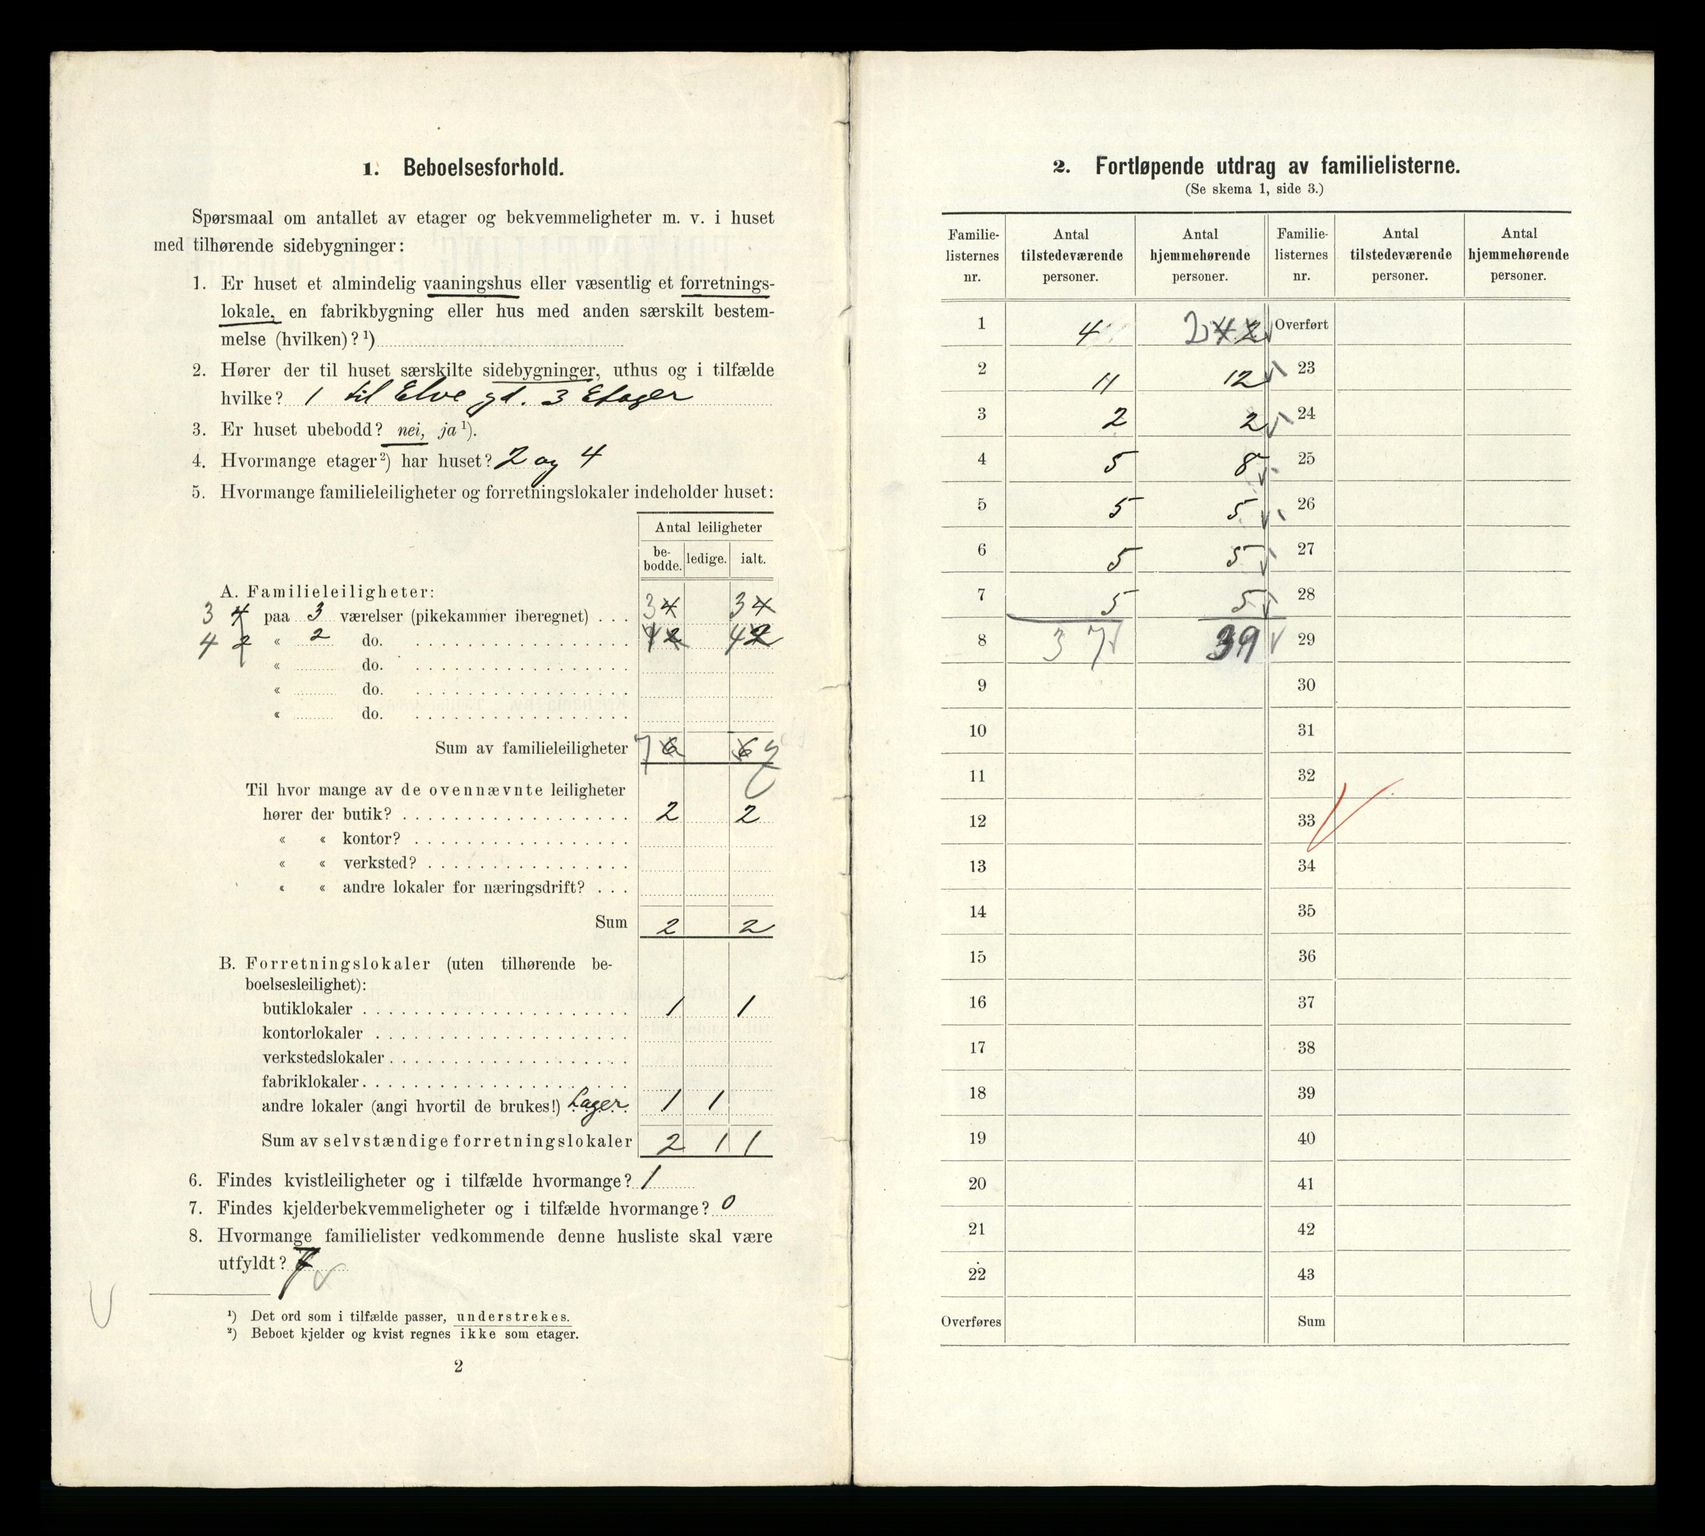 1. Beboelsesforhold.
Spørsmaal om antallet av etager og bekvemmeligheter m. v. i huset
med tilhørende sidebygninger:
1. Er huset et almindelig vaaningshus eller væsentlig et forretnings-
lokale, en fabrikbygning eller hus med anden særskilt bestem-
melse (hvilken)? ¹)
2. Hører der til huset særskilte sidebygninger, uthus og i tilfælde
hvilke? 1 til Elve gd. 3 Etager
3. Er huset ubebodd? nei, ja ¹).
4. Hvormange etager ²) har huset? 2 og 4
5. Hvormange familieleiligheter og forretningslokaler indeholder huset:
Antal leiligheter
be-
bodde. ledige. ialt.
A. Familieleiligheter:
3 4 paa 3 værelser (pikekammer iberegnet) . . . 34 34
4 2 « 2 do. 42 42
« do.
« do.
« do.
Sum av familieleiligheter 7 6 6 7
Til hvor mange av de ovennævnte leiligheter
hører der butik? 2 2
« « kontor?
« « verksted?
« « andre lokaler for næringsdrift? . . .
Sum 2 2
B. Forretningslokaler (uten tilhørende be-
boelsesleilighet):
butiklokaler 1 1
kontorlokaler
verkstedslokaler
fabriklokaler
andre lokaler (angi hvortil de brukes!) Lager. 1 1
Sum av selvstændige forretningslokaler 2 1 1
6. Findes kvistleiligheter og i tilfælde hvormange? 1
7. Findes kjelderbekvemmeligheter og i tilfælde hvormange? 0
8. Hvormange familielister vedkommende denne husliste skal være
utfyldt? 7
¹) Det ord som i tilfælde passer, understrekes.
²) Beboet kjelder og kvist regnes ikke som etager.
2
2. Fortløpende utdrag av familielisterne.
(Se skema 1, side 3.)
Familie- Antal Antal Familie- Antal Antal
listernes tilstedeværende hjemmehørende listernes tilstedeværende hjemmehørende
nr. personer. personer. nr. personer. personer.
1 4 2 4 2 Overført
2 11 12 23
3 2 2 24
4 5 8 25
5 5 5 26
6 5 5 27
7 5 5 28
8 37 39 29
9 30
10 31
11 32
12 33
13 34
14 35
15 36
16 37
17 38
18 39
19 40
20 41
21 42
22 43
Overføres Sum